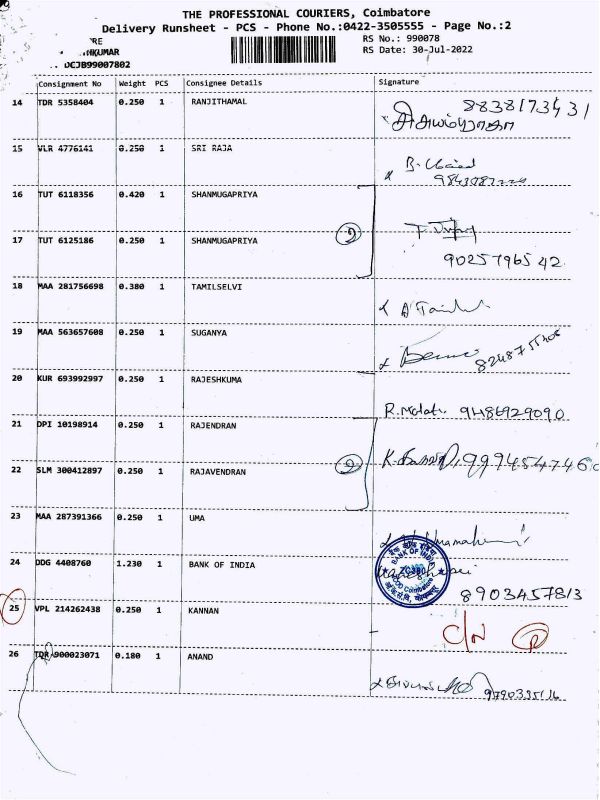 THE PROFESSIONAL COURIERS, Coimbatore
Delivery Runsheet - PCS - Phone No.:0422-3505555 - Page No.:2
RS No.: 990078
RS Date: 30-Jul-2022
DCJB99007802
Consignment No Weight PCS Consignee Details Signature
14 TDR 5358404 0.250 1 RANJITHAMAL 8838173431
15 VLR 4776141 0.250 1 SRI RAJA
16 TUT 6118356 0.420 1 SHANMUGAPRIYA
17 TUT 6125186 0.250 1 SHANMUGAPRIYA 2
9025796542
18 MAA 281756698 0.380 1 TAMILSELVI
19 MAA 563657608 0.250 1 SUGANYA
20 KUR 693992997 0.250 1 RAJESHKUMA
R.Malati 9486929090
21 DPI 10198914 0.250 1 RAJENDRAN
22 SLM 300412897 0.250 1 RAJAVENDRAN 2
9994547460
23 MAA 287391366 0.250 1 UMA
24 DDG 4408760 1.230 1 BANK OF INDIA
BANK OF INDIA
Coimbatore
8903457813
25 VPL 214262438 0.250 1 KANNAN
C/N
26 TDR 900023071 0.180 1 ANAND